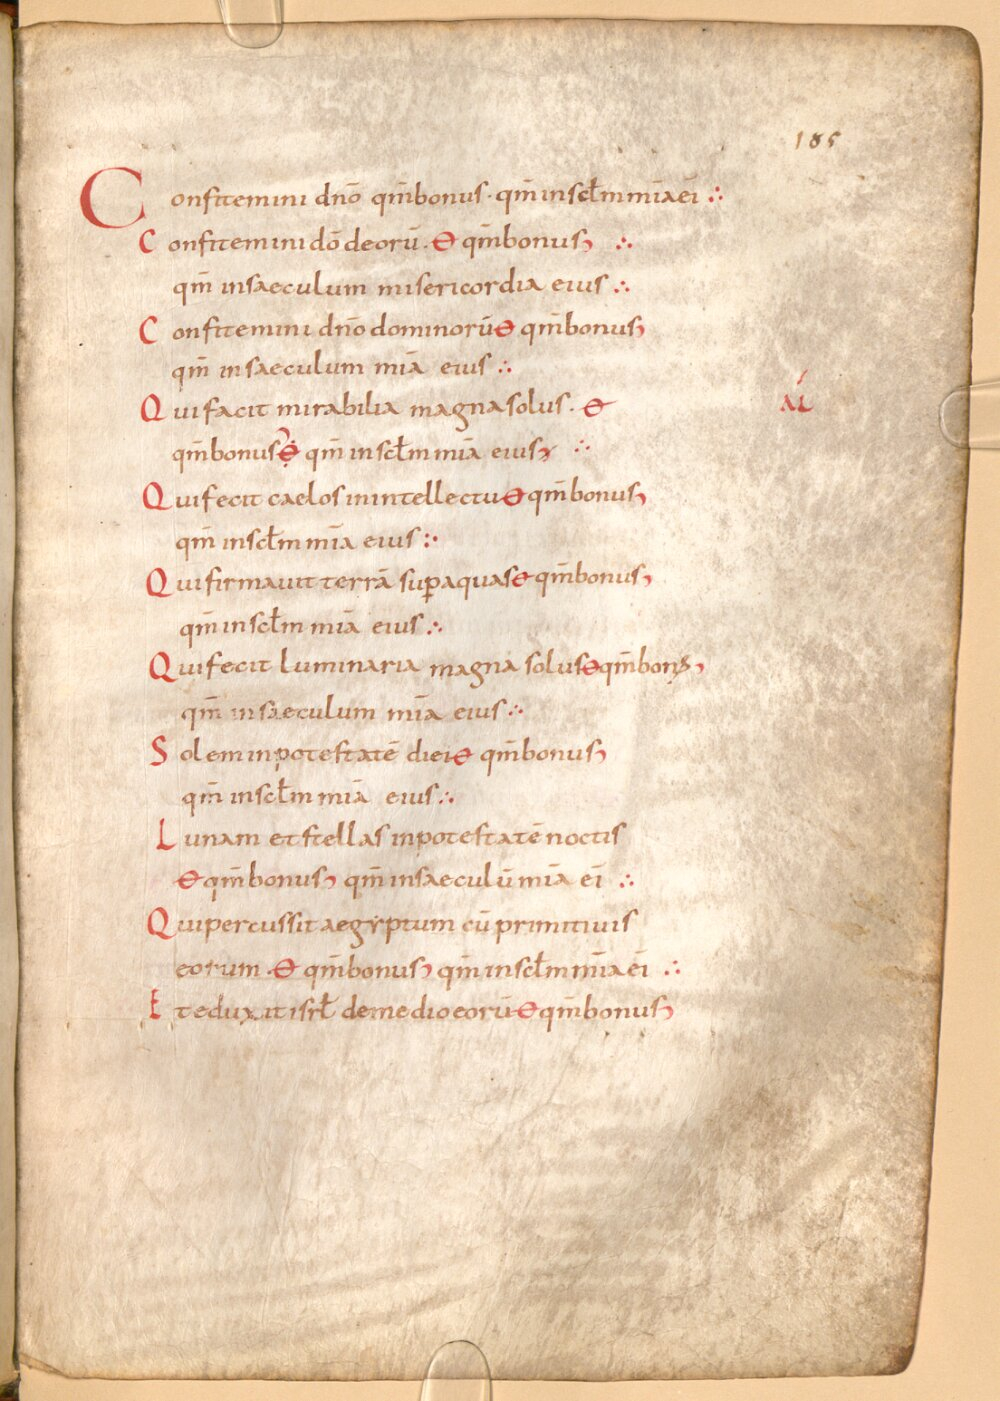 185
Confitemini dnō qm̄ bonus · qm̄ in scl̄m mīa eī ∴
Confitemini dō deorū · Θ qm̄ bonus ∴
qm̄ in saeculum misericordia eius ∴
Confitemini dnō dominorū Θ qm̄ bonus
qm̄ in saeculum mīa eius ∴
Qui facit mirabilia magna solus · Θ
AĹ
qm̄ bonus Θ qm̄ in scl̄m mīa eius ∴
Qui fecit caelos in intellectu Θ qm̄ bonus
qm̄ in scl̄m mīa eius ∴
Qui firmauit terrā suꝑ aquas Θ qm̄ bonus
qm̄ in scl̄m mīa eius ∴
Qui fecit luminaria magna solus Θ qm̄ bonus
qm̄ in saeculum mīa eius ∴
Solem in potestatē diei Θ qm̄ bonus
qm̄ in scl̄m mīa eius ∴
Lunam et stellas in potestatē noctis
Θ qm̄ bonus qm̄ in saeculū mīa eī ∴
Qui percussit aegyptum cū primitiuis
eorum · Θ qm̄ bonus qm̄ in scl̄m mīa eī ∴
Et eduxit isrl̄ de medio eorū Θ qm̄ bonus